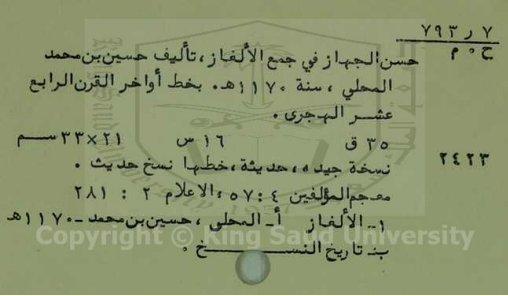 ٧٩٣ر٧
ح ٠ م
حسن الجهاز في جمع الألغاز، تأليف حسين بن محمد
المحلي، سنة ١١٧٠هـ. بخط أواخر القرن الرابع
عشر الهجرى.
٣٥ ق ١٦ س ٢١×٣٣ سم
٢٤٢٣
نسخة جيده، حديثة، خطها نسخ حديث.
معجم المؤلفين ٤ : ٥٧، الاعلام ٢ : ٢٨١
١- الألغاز أ- المحلى، حسين بن محمد - ١١٧٠هـ
ب- تاريخ النسخ.
Copyright © King Saud University